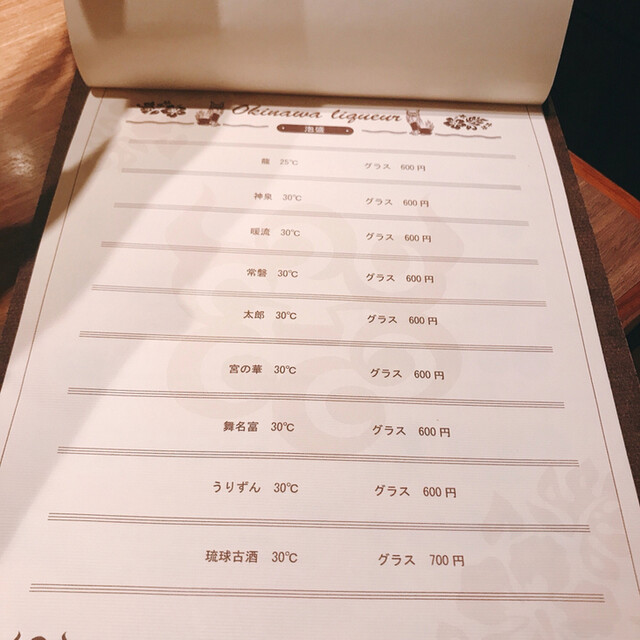 Okinawa liqueur
泡盛
龍 25℃ グラス 600円
神泉 30℃ グラス 600円
暖流 30℃ グラス 600円
常磐 30℃ グラス 600円
太郎 30℃ グラス 600円
宮の華 30℃ グラス 600円
舞名富 30℃ グラス 600円
うりずん 30℃ グラス 600円
琉球古酒 30℃ グラス 700円